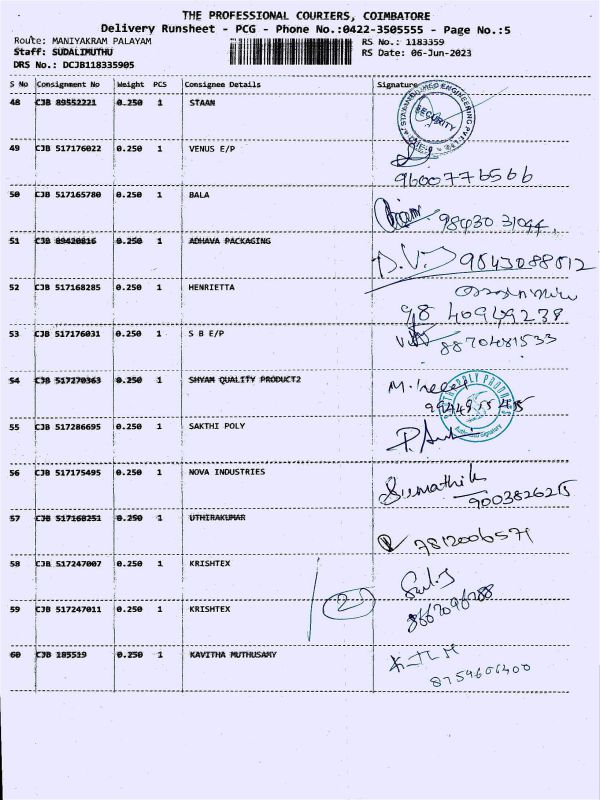 THE PROFESSIONAL COURIERS, COIMBATORE
Delivery Runsheet - PCG - Phone No.:0422-3505555 - Page No.:5
Route: MANIYAKRAM PALAYAM RS No.: 1183359
Staff: SUDALIMUTHU RS Date: 06-Jun-2023
DRS No.: DCJB118335905
S No Consignment No Weight PCS Consignee Details Signature
48 CJB 89552221 0.250 1 STAAN
SECURITY
49 CJB 517176022 0.250 1 VENUS E/P
9600776566
50 CJB 517165780 0.250 1 BALA
98430 31044
51 CJB 89420816 0.250 1 ADHAVA PACKAGING
D.V. 9843088812
52 CJB 517168285 0.250 1 HENRIETTA
98 40949238
53 CJB 517176031 0.250 1 S B E/P
8870481533
54 CJB 517270363 0.250 1 SHYAM QUALITY PRODUCT2
55 CJB 517286695 0.250 1 SAKTHI POLY
56 CJB 517175495 0.250 1 NOVA INDUSTRIES
Sumathi k
9003826215
57 CJB 517168251 0.250 1 UTHIRAKUMAR
7812006571
58 CJB 517247007 0.250 1 KRISHTEX
2
59 CJB 517247011 0.250 1 KRISHTEX
8667096288
60 CJB 185519 0.250 1 KAVITHA MUTHUSAMY
8754606400